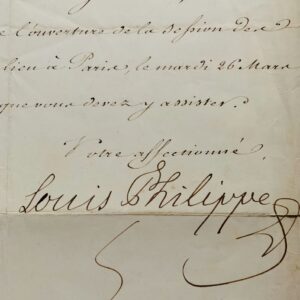 l'ouverture de la Session des
lieu à Paris, le mardi 26 Mars
que vous devez y assister.
Votre affectionné
Louis Philippe